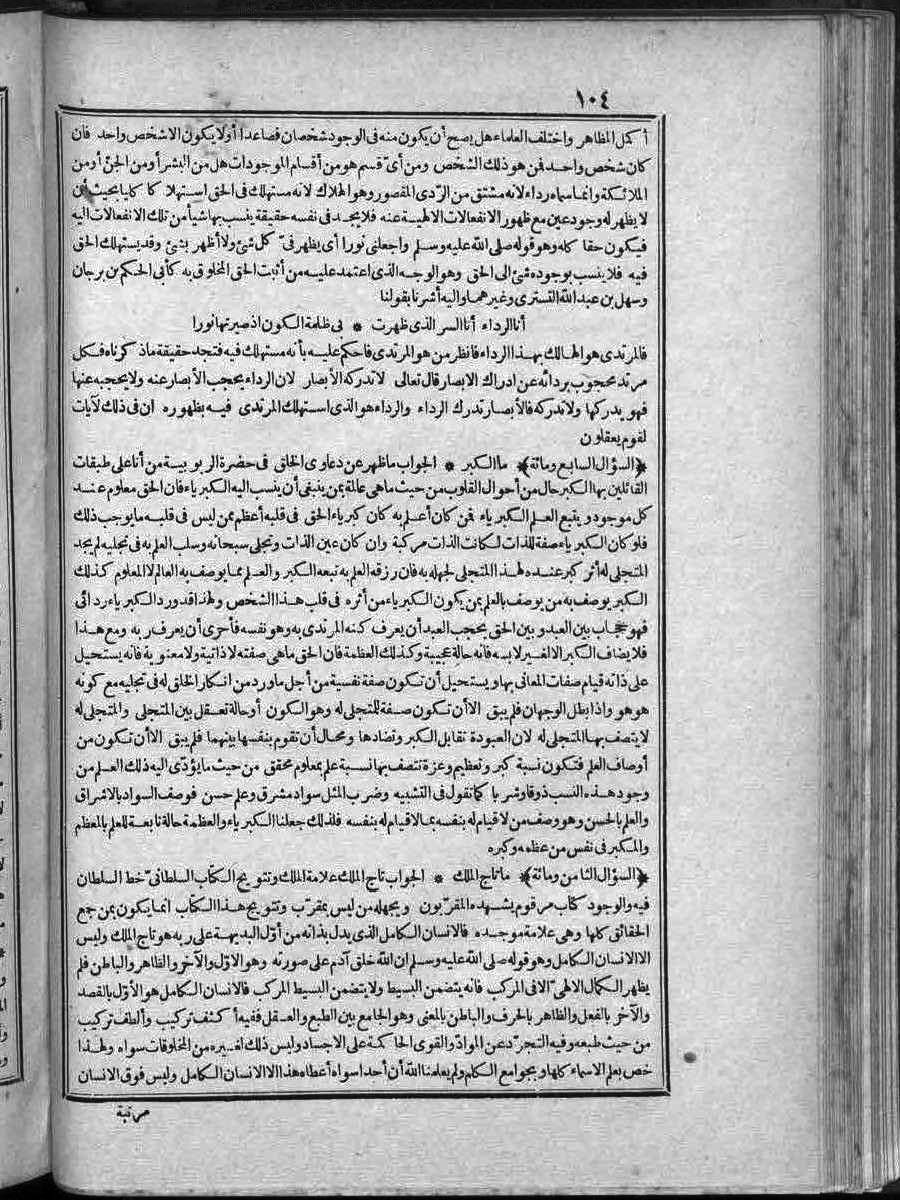 ١٠٤
أكمل المظاهر واختلف العلماء هل يصح أن يكون منه فى الوجود شخصان فصاعدا أولا يكون الاشخص واحد فان
كان شخص واحد فمن هو ذلك الشخص ومن أىّ قسم هو من أقسام الموجودات هل من البشر أومن الجنّ أومن
الملائكة وانما سماه رداء لانه مشتق من الرّدى المقصور وهو الهلاك لانه مستهلك فى الحق استهلا كا كليا بحيث أن
لا يظهر له وجود عين مع ظهور الانفعالات الالهية عنه فلا يجد فى نفسه حقيقة ينسب بها شيأ من تلك الانفعالات اليه
فيكون حقا كله وهو قوله صلى الله عليه وسلم واجعلنى نورا أى يظهر فىّ كل شئ ولا أظهر بشئ وقد يستهلك الحق
فيه فلا ينسب بوجوده شئ الى الحق وهو الوجه الذى اعتمد عليه من أثبت الحق المخلوق به كأبى الحكم بن برجان
وسهل بن عبد الله التسترى وغيرهما واليه أشرنا بقولنا
أنا الرداء أنا السر الذى ظهرت * بى ظلمة الكون اذ صيرتها نورا
فالمرتدى هو الهالك بهذا الرداء فانظر من هو المرتدى فاحكم عليه بأنه مستهلك فيه فتجد حقيقة ماذكرناه فكل
مرتد محجوب بردائه عن ادراك الابصار قال تعالى لا تدركه الأبصار لان الرداء يحجب الأبصار عنه ولا يحجبه عنها
فهو يدركها ولا تدركه فالأبصار تدرك الرداء والرداء هو الذى استهلك المرتدى فيه بظهوره ان فى ذلك لآيات
لقوم يعقلون
﴿السؤال السابع ومائة﴾ ما الكبر * الجواب ماظهر عن دعاوى الخلق فى حضرة الربوبية من أنا على طبقات
القائلين بها الكبر حال من أحوال القلوب من حيث ماهى عالمة بمن ينبغى أن ينسب اليه الكبرياء فان الحق معلوم عند
كل موجود ويتبع العلم الكبرياء فمن كان أعلم به كان كبرياء الحق فى قلبه أعظم ممن ليس فى قلبه مايوجب ذلك
فلو كان الكبرياء صفة للذات لكانت الذات مركبة وان كان عين الذات وتجلى سبحانه وسلب العلم به فى تجليه لم يجد
المتجلى له أثر كبر عنده لهذا المتجلى لجهله به فان رزقه العلم به تبعه الكبر والعلم مما يوصف به العالم لا المعلوم كذلك
الكبر يوصف به من يوصف بالعلم بمن يكون الكبرياء من أثره فى قلب هذا الشخص ولهذا قد ورد الكبرياء ردائى
فهو حجاب بين العبد وبين الحق يحجب العبد أن يعرف كنه المرتدى به وهو نفسه فأحرى أن يعرف ربه ومع هذا
فلا يضاف الكبر الالغير لابسه فانه حالة عجيبة وكذلك العظمة فان الحق ماهى صفته لا ذاتية ولا معنوية فانه يستحيل
على ذاته قيام صفات المعانى بها ويستحيل أن تكون صفة نفسية من أجل ماورد من انكار الخلق له فى تجليه مع كونه
هو هو واذا بطل الوجهان فلم يبق الا أن تكون صفة للمتجلى له وهو الكون أو حالة تعقل بين المتجلى والمتجلى له
لا يتصف بها المتجلى له لان العبودة تقابل الكبر وتضادها ومحال أن تقوم بنفسها بينهما فلم يبق الا أن تكون من
أوصاف العلم فتكون نسبة كبر وتعظيم وعزة تتصف بها نسبة علم بمعلوم محقق من حيث مايؤدّى اليه ذلك العلم من
وجود هذه النسب ذوقا وشربا كما تقول فى التشبيه وضرب المثل سواد مشرق وعلم حسن فوصف السواد بالاشراق
والعلم بالحسن وهو وصف من لا قيام له بنفسه بمالا قيام له بنفسه فلذلك جعلنا الكبرياء والعظمة حالة تابعة للعلم بالمعظم
والمكبر فى نفس من عظمه وكبره
﴿السؤال الثامن ومائة﴾ ماتاج الملك * الجواب تاج الملك علامة الملك وتتويج الكتاب السلطانىّ خط السلطان
فيه والوجود كتاب مرقوم يشهده المقرّبون ويجهله من ليس بمقرّب وتتويج هذا الكتاب انما يكون بمن جمع
الحقائق كلها وهى علامة موجده فالانسان الكامل الذى يدل بذاته من أوّل البديهة على ربه هو تاج الملك وليس
الا الانسان الكامل وهو قوله صلى الله عليه وسلم ان الله خلق آدم على صورته وهو الاوّل والآخر والظاهر والباطن فلم
يظهر الكمال الالهىّ الا فى المركب فانه يتضمن البسيط ولا يتضمن البسيط المركب فالانسان الكامل هو الأوّل بالقصد
والآخر بالفعل والظاهر بالحرف والباطن بالمعنى وهو الجامع بين الطبع والعقل ففيه أكثف تركيب وألطف تركيب
من حيث طبعه وفيه التجرّد عن الموادّ والقوى الحاكمة على الاجساد وليس ذلك لغيره من المخلوقات سواه ولهذا
خص بعلم الاسماء كلها وبجوامع الكلم ولم يعلمنا الله أن أحدا سواه أعطاه هذا الا الانسان الكامل وليس فوق الانسان
مرتبة